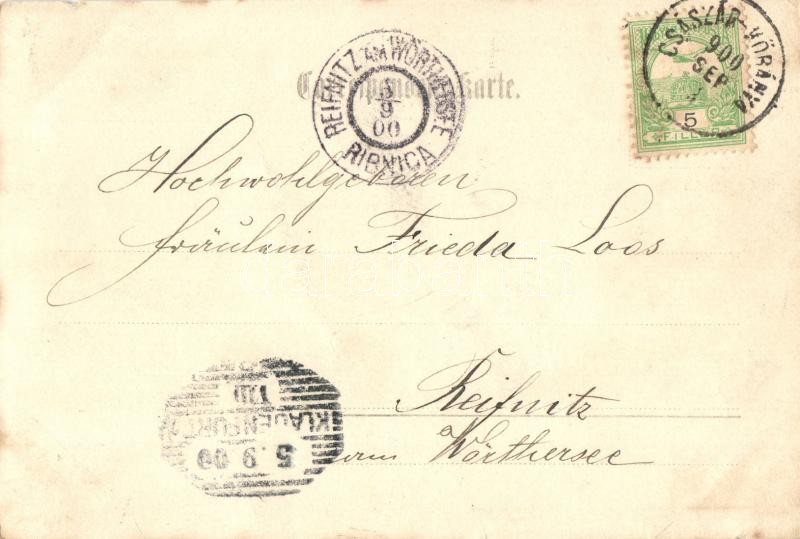 CSÁSZÁR-VÖRÁNYA
900
SEP
5
FILLÉR
REIFNITZ AM WÖRTHERSEE
9
00
RIBNICA
Correspondenz-Karte.
Hochwohlgeboren
Fräulein Frieda Loos
Reifnitz
am Wörthersee
KLAGENFURT
5.9.00